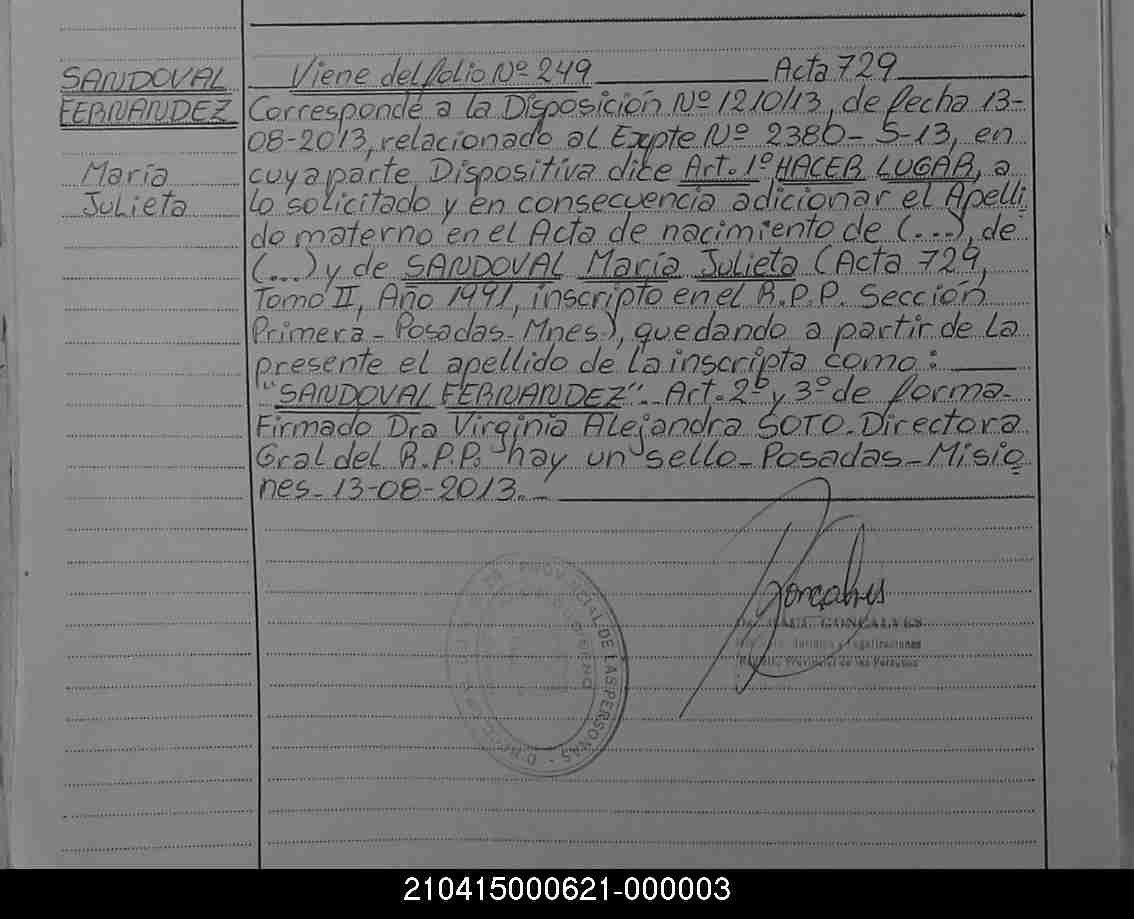 SANDOVAL
FERNANDEZ
María
Julieta
Viene del folio Nº 249 Acta 729
Corresponde a la Disposición Nº 1210/13, de fecha 13-
08-2013, relacionado al Expte Nº 2380-S-13, en
cuya parte Dispositiva dice Art. 1º HACER LUGAR, a
lo solicitado y en consecuencia adicionar el Apelli
do materno en el Acta de nacimiento de (...), de
(...) y de SANDOVAL María Julieta (Acta 729,
Tomo II, Año 1991, inscripto en el R.P.P. Sección
Primera - Posadas - Mnes.), quedando a partir de la
presente el apellido de la inscripta como:
"SANDOVAL FERNANDEZ". Art. 2º y 3º de forma-
Firmado Dra Virginia Alejandra SOTO. Directora
Gral del R.P.P. hay un sello - Posadas - Misio
nes - 13-08-2013.
PROVINCIAL DE LAS PERSONAS
Goncalves
GONCALVES
Registro Provincial de las Personas
210415000621-000003